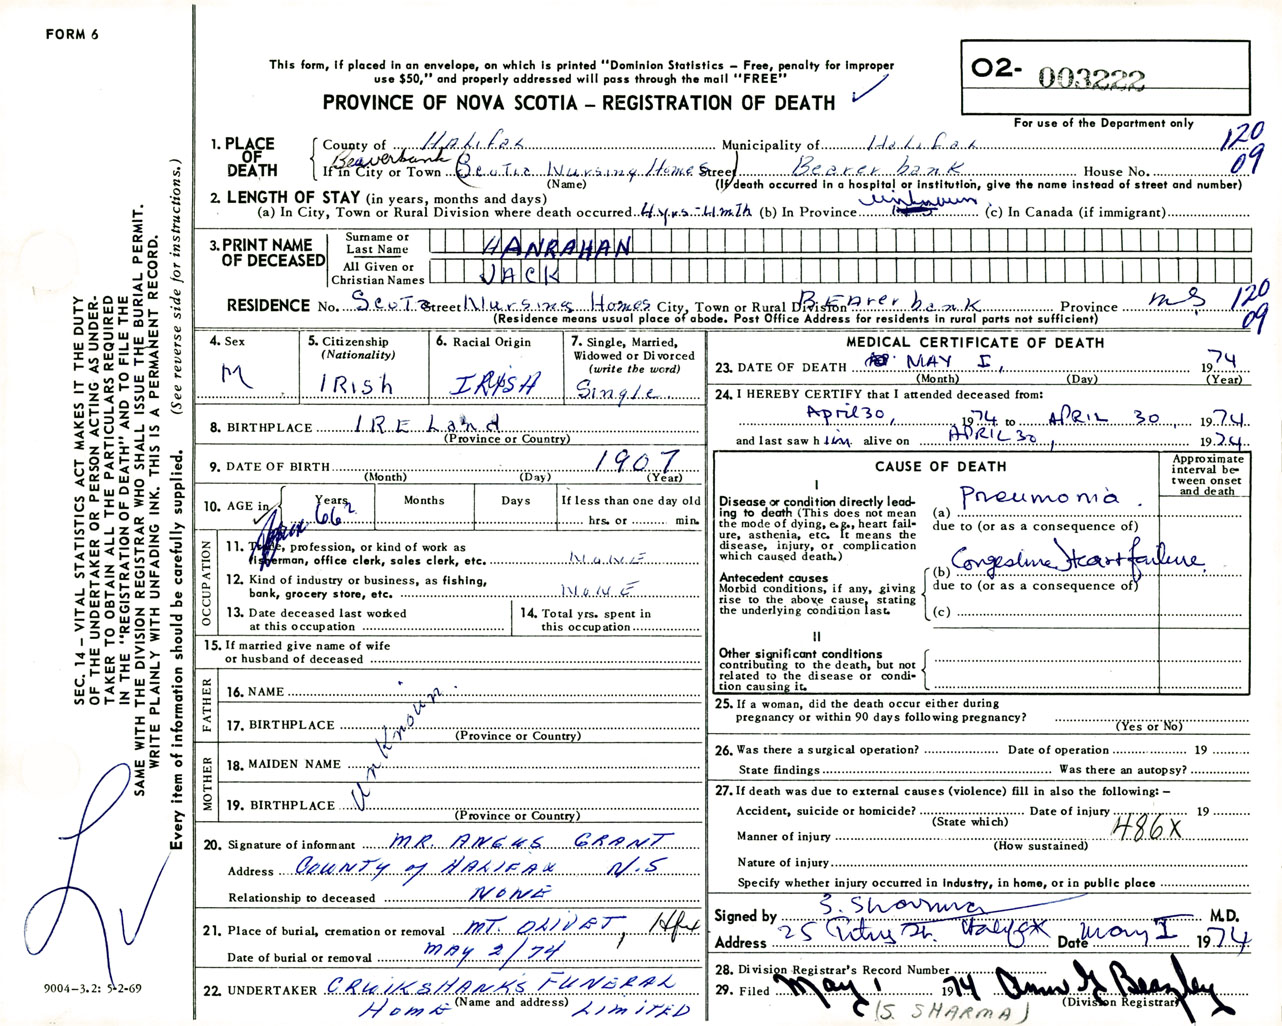 FORM 6
This form, if placed in an envelope, on which is printed "Dominion Statistics – Free, penalty for improper
use $50," and properly addressed will pass through the mail "FREE"
PROVINCE OF NOVA SCOTIA – REGISTRATION OF DEATH ✓
O2- 003222
For use of the Department only
1. PLACE OF DEATH
County of Halifax Municipality of Halifax 120
Beaverbank
If in City or Town (Scotia Nursing Homes) Street Beaver bank House No. 09
(Name) (If death occurred in a hospital or institution, give the name instead of street and number)
2. LENGTH OF STAY (in years, months and days) unknown
(a) In City, Town or Rural Division where death occurred 4 yrs-4mth (b) In Province (c) In Canada (if immigrant)
3. PRINT NAME OF DECEASED
Surname or Last Name HANRAHAN
All Given or Christian Names JACK
RESIDENCE No. Scotia Street Nursing Homes City, Town or Rural Division BEAver bank Province N.S 120
09
(Residence means usual place of abode. Post Office Address for residents in rural parts not sufficient)
4. Sex
M
5. Citizenship
(Nationality)
IRish
6. Racial Origin
IRISH
7. Single, Married,
Widowed or Divorced
(write the word)
Single
8. BIRTHPLACE IRELand
(Province or Country)
9. DATE OF BIRTH 1907
(Month) (Day) (Year)
10. AGE in Years 66 Months Days If less than one day old
hrs. or min.
OCCUPATION
11. Trade, profession, or kind of work as
fisherman, office clerk, sales clerk, etc. NONE
12. Kind of industry or business, as fishing,
bank, grocery store, etc. NONE
13. Date deceased last worked
at this occupation
14. Total yrs. spent in
this occupation
15. If married give name of wife
or husband of deceased
FATHER
16. NAME
17. BIRTHPLACE
(Province or Country)
unknown
MOTHER
18. MAIDEN NAME
19. BIRTHPLACE
(Province or Country)
20. Signature of informant MR. ANGUS GRANT
Address COUNTY of HALIFAX N.S
Relationship to deceased NONE
21. Place of burial, cremation or removal MT. OLIVET, Hfx
Date of burial or removal MAY 2/74
22. UNDERTAKER CRUIKSHANKS FUNERAL
(Name and address)
HOME LIMITED
MEDICAL CERTIFICATE OF DEATH
23. DATE OF DEATH MAY 1, 1974
(Month) (Day) (Year)
24. I HEREBY CERTIFY that I attended deceased from:
April 30, 1974 to APRIL 30, 1974
and last saw him alive on APRIL 30, 1974
CAUSE OF DEATH
Approximate
interval be-
tween onset
and death
I
Disease or condition directly lead-
ing to death (This does not mean
the mode of dying, e.g., heart fail-
ure, asthenia, etc. It means the
disease, injury, or complication
which caused death.)
(a) Pneumonia.
due to (or as a consequence of)
Antecedent causes
Morbid conditions, if any, giving
rise to the above cause, stating
the underlying condition last.
(b) Congestive Heart failure
due to (or as a consequence of)
(c)
II
Other significant conditions
contributing to the death, but not
related to the disease or condi-
tion causing it.
25. If a woman, did the death occur either during
pregnancy or within 90 days following pregnancy?
(Yes or No)
26. Was there a surgical operation? Date of operation 19
State findings Was there an autopsy?
27. If death was due to external causes (violence) fill in also the following: –
Accident, suicide or homicide? Date of injury 19
(State which)
486X
Manner of injury
(How sustained)
Nature of injury
Specify whether injury occurred in industry, in home, or in public place
Signed by S. Sharma M.D.
Address 25 St. Halifax Date May 1 1974
28. Division Registrar's Record Number
29. Filed May 1 1974 Ann G Beazley
(Division Registrar)
(S. SHARMA)
SEC. 14 – VITAL STATISTICS ACT MAKES IT THE DUTY
OF THE UNDERTAKER OR PERSON ACTING AS UNDER-
TAKER TO OBTAIN ALL THE PARTICULARS REQUIRED
IN THE "REGISTRATION OF DEATH" AND TO FILE THE
SAME WITH THE DIVISION REGISTRAR WHO SHALL ISSUE THE BURIAL PERMIT.
WRITE PLAINLY WITH UNFADING INK. THIS IS A PERMANENT RECORD.
Every item of information should be carefully supplied. (See reverse side for instructions.)
9004-3.2: 5-2-69